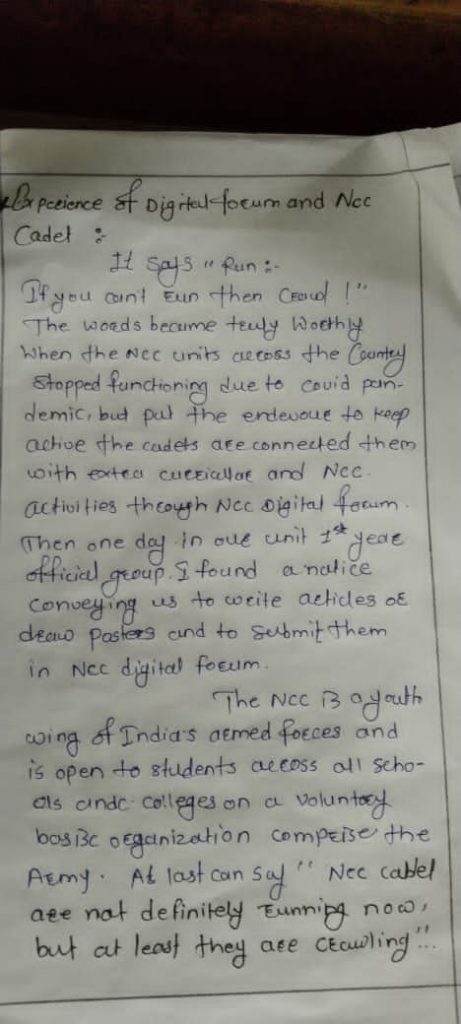 Experience of Digital forum and Ncc
Cadet :-
It says " Run :-
If you can't run then crawl !"
The words became truly worthly
When the NCC units across the Country
stopped functioning due to covid pan-
demic, but put the endevour to keep
active the cadets are connected them
with extra curriallar and NCC
activities through NCC Digital forum.
Then one day in our unit 1st year
official group. I found a notice
conveying us to write acticles or
draw posters and to submit them
in NCC digital forum.
The NCC is a youth
wing of India's armed forces and
is open to students across all scho-
ols andc colleges on a voluntary
basisc organization comprise the
Army. At last can say " Ncc cablet
are not definitely running now,
but at least they are crawling"..